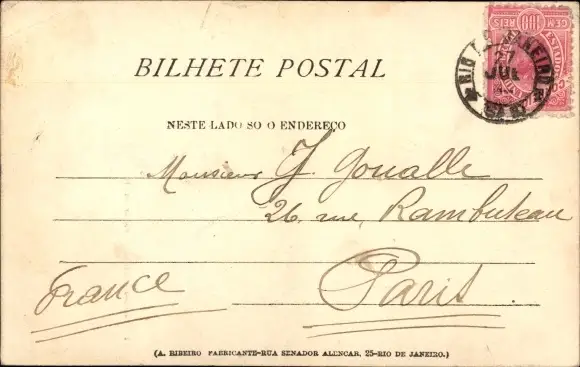 CEM 100 REIS
ESTADOS
RIO DE JANEIRO
27
JUL
BILHETE POSTAL
NESTE LADO SO O ENDEREÇO
Monsieur J. Goualle
26. rue, Rambuteau
Paris
France
(A. RIBEIRO FABRICANTE-RUA SENADOR ALENCAR, 25-RIO DE JANEIRO.)